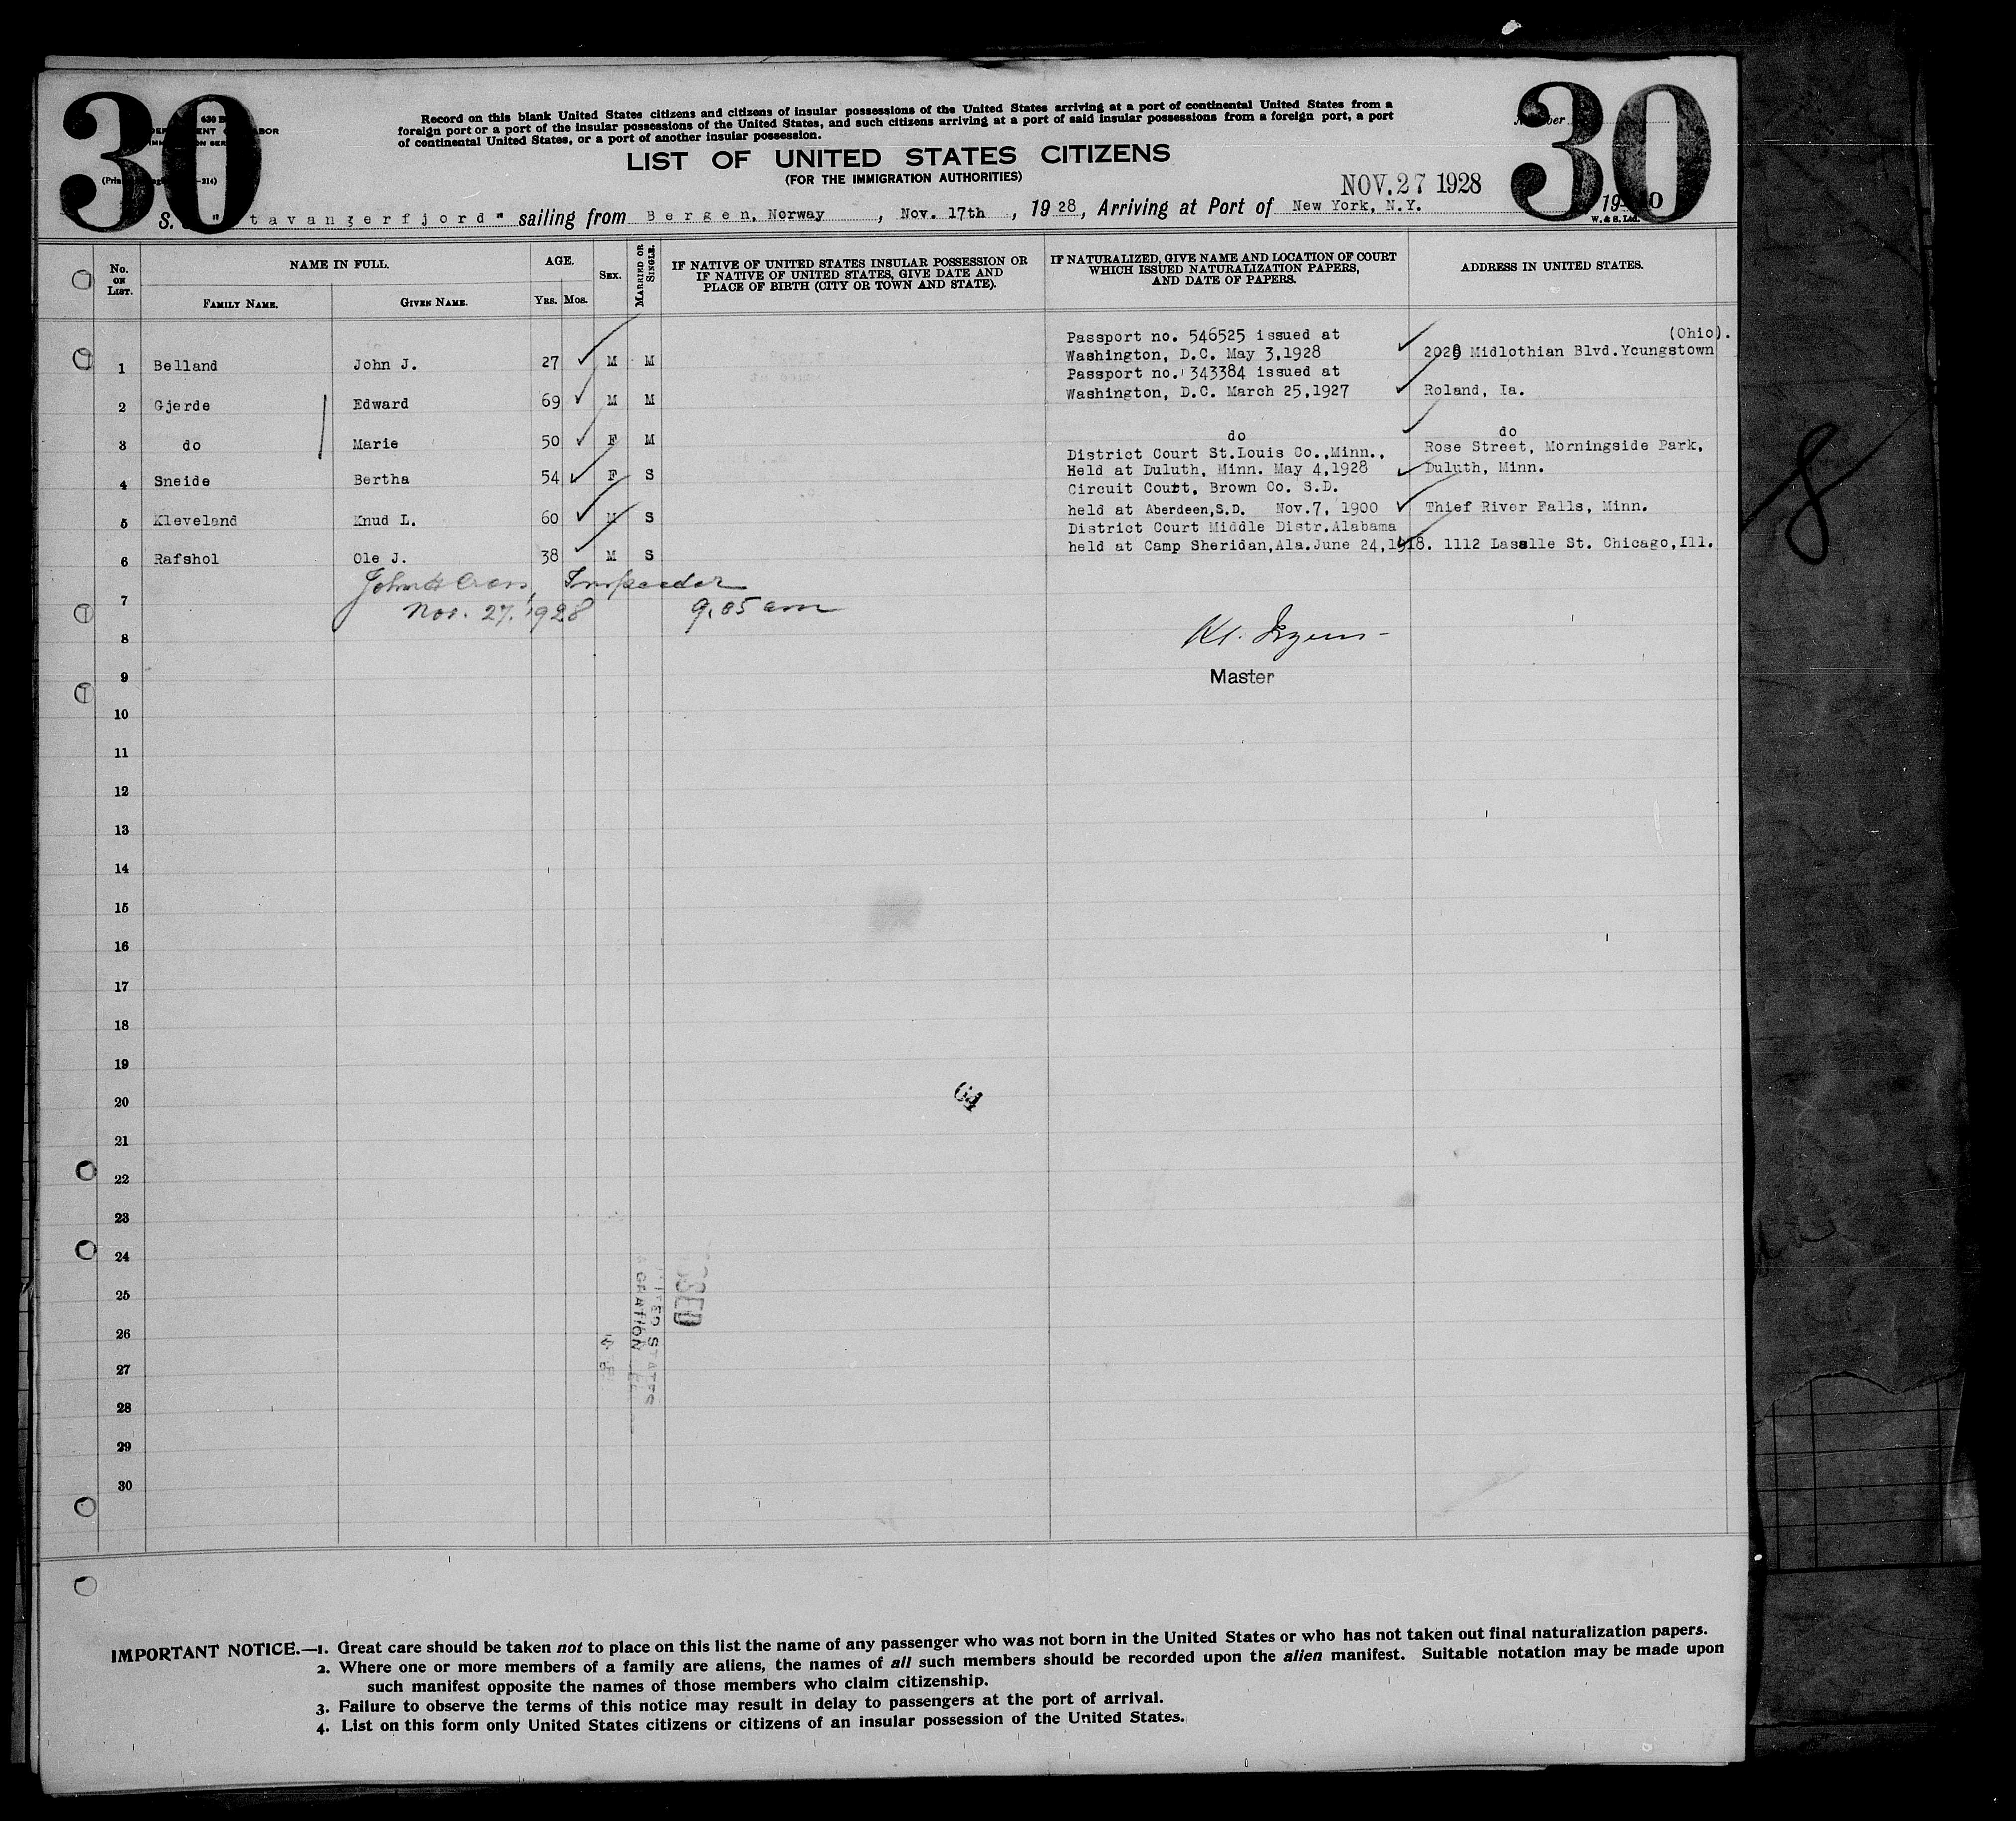 30
30
Record on this blank United States citizens and citizens of insular possessions of the United States arriving at a port of continental United States from a
foreign port or a port of the insular possessions of the United States, and such citizens arriving at a port of said insular possessions from a foreign port, a port
of continental United States, or a port of another insular possession.
LIST OF UNITED STATES CITIZENS
(FOR THE IMMIGRATION AUTHORITIES)
NOV. 27 1928
S. "tavangerfjord" sailing from Bergen, Norway, Nov. 17th, 1928, Arriving at Port of New York, N.Y. 19
W. & S. Ltd.
No. ON LIST.
NAME IN FULL.
FAMILY NAME.
GIVEN NAME.
AGE.
YRS. MOS.
SEX.
MARRIED OR SINGLE.
IF NATIVE OF UNITED STATES INSULAR POSSESSION OR
IF NATIVE OF UNITED STATES, GIVE DATE AND
PLACE OF BIRTH (CITY OR TOWN AND STATE).
IF NATURALIZED, GIVE NAME AND LOCATION OF COURT
WHICH ISSUED NATURALIZATION PAPERS,
AND DATE OF PAPERS.
ADDRESS IN UNITED STATES.
Passport no. 546525 issued at (Ohio).
1 Belland John J. 27 M M Washington, D.C. May 3,1928 Midlothian Blvd.Youngstown
Passport no. 343384 issued at
2 Gjerde Edward 69 M M Washington, D.C. March 25,1927 Roland, Ia.
3 do Marie 50 F M do do
District Court St.Louis Co.,Minn., Rose Street, Morningside Park,
4 Sneide Bertha 54 F S Held at Duluth, Minn. May 4,1928 Duluth, Minn.
Circuit Court, Brown Co. S.D.
5 Kleveland Knud L. 60 M S held at Aberdeen,S.D. Nov.7, 1900 Thief River Falls, Minn.
District Court Middle Distr.Alabama
6 Rafshol Ole J. 38 M S held at Camp Sheridan,Ala.June 24,1918. 1112 Lasalle St. Chicago,Ill.
Inspector
7 Nov. 27, 1928 9.05 am
8
9 Master
10
11
12
13
14
15
16
17
18
19
20
64
21
22
23
24
25
26
27
28
29
30
UNITED STATES
8
IMPORTANT NOTICE.—1. Great care should be taken not to place on this list the name of any passenger who was not born in the United States or who has not taken out final naturalization papers.
2. Where one or more members of a family are aliens, the names of all such members should be recorded upon the alien manifest. Suitable notation may be made upon
such manifest opposite the names of those members who claim citizenship.
3. Failure to observe the terms of this notice may result in delay to passengers at the port of arrival.
4. List on this form only United States citizens or citizens of an insular possession of the United States.